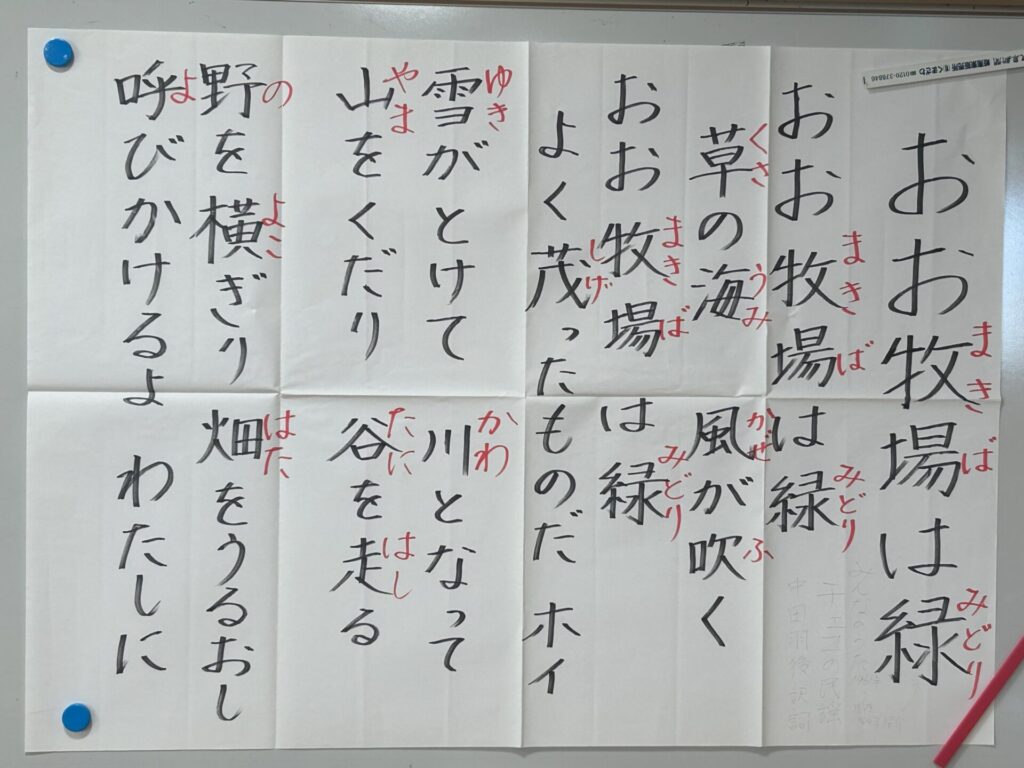 おお牧場は緑
おお牧場は緑
草の海 風が吹く
おお牧場は緑
よく茂ったものだ ホイ
雪がとけて 川となって
山をくだり 谷を走る
野を横ぎり 畑をうるおし
呼びかけるよ わたしに
まきば みどり
まきば みどり
くさ うみ かぜ ふ
まきば みどり
しげ
ゆき かわ
やま たに はし
の よこ はた
よ
チェコの民謡
中田羽後訳詞
0120-378846